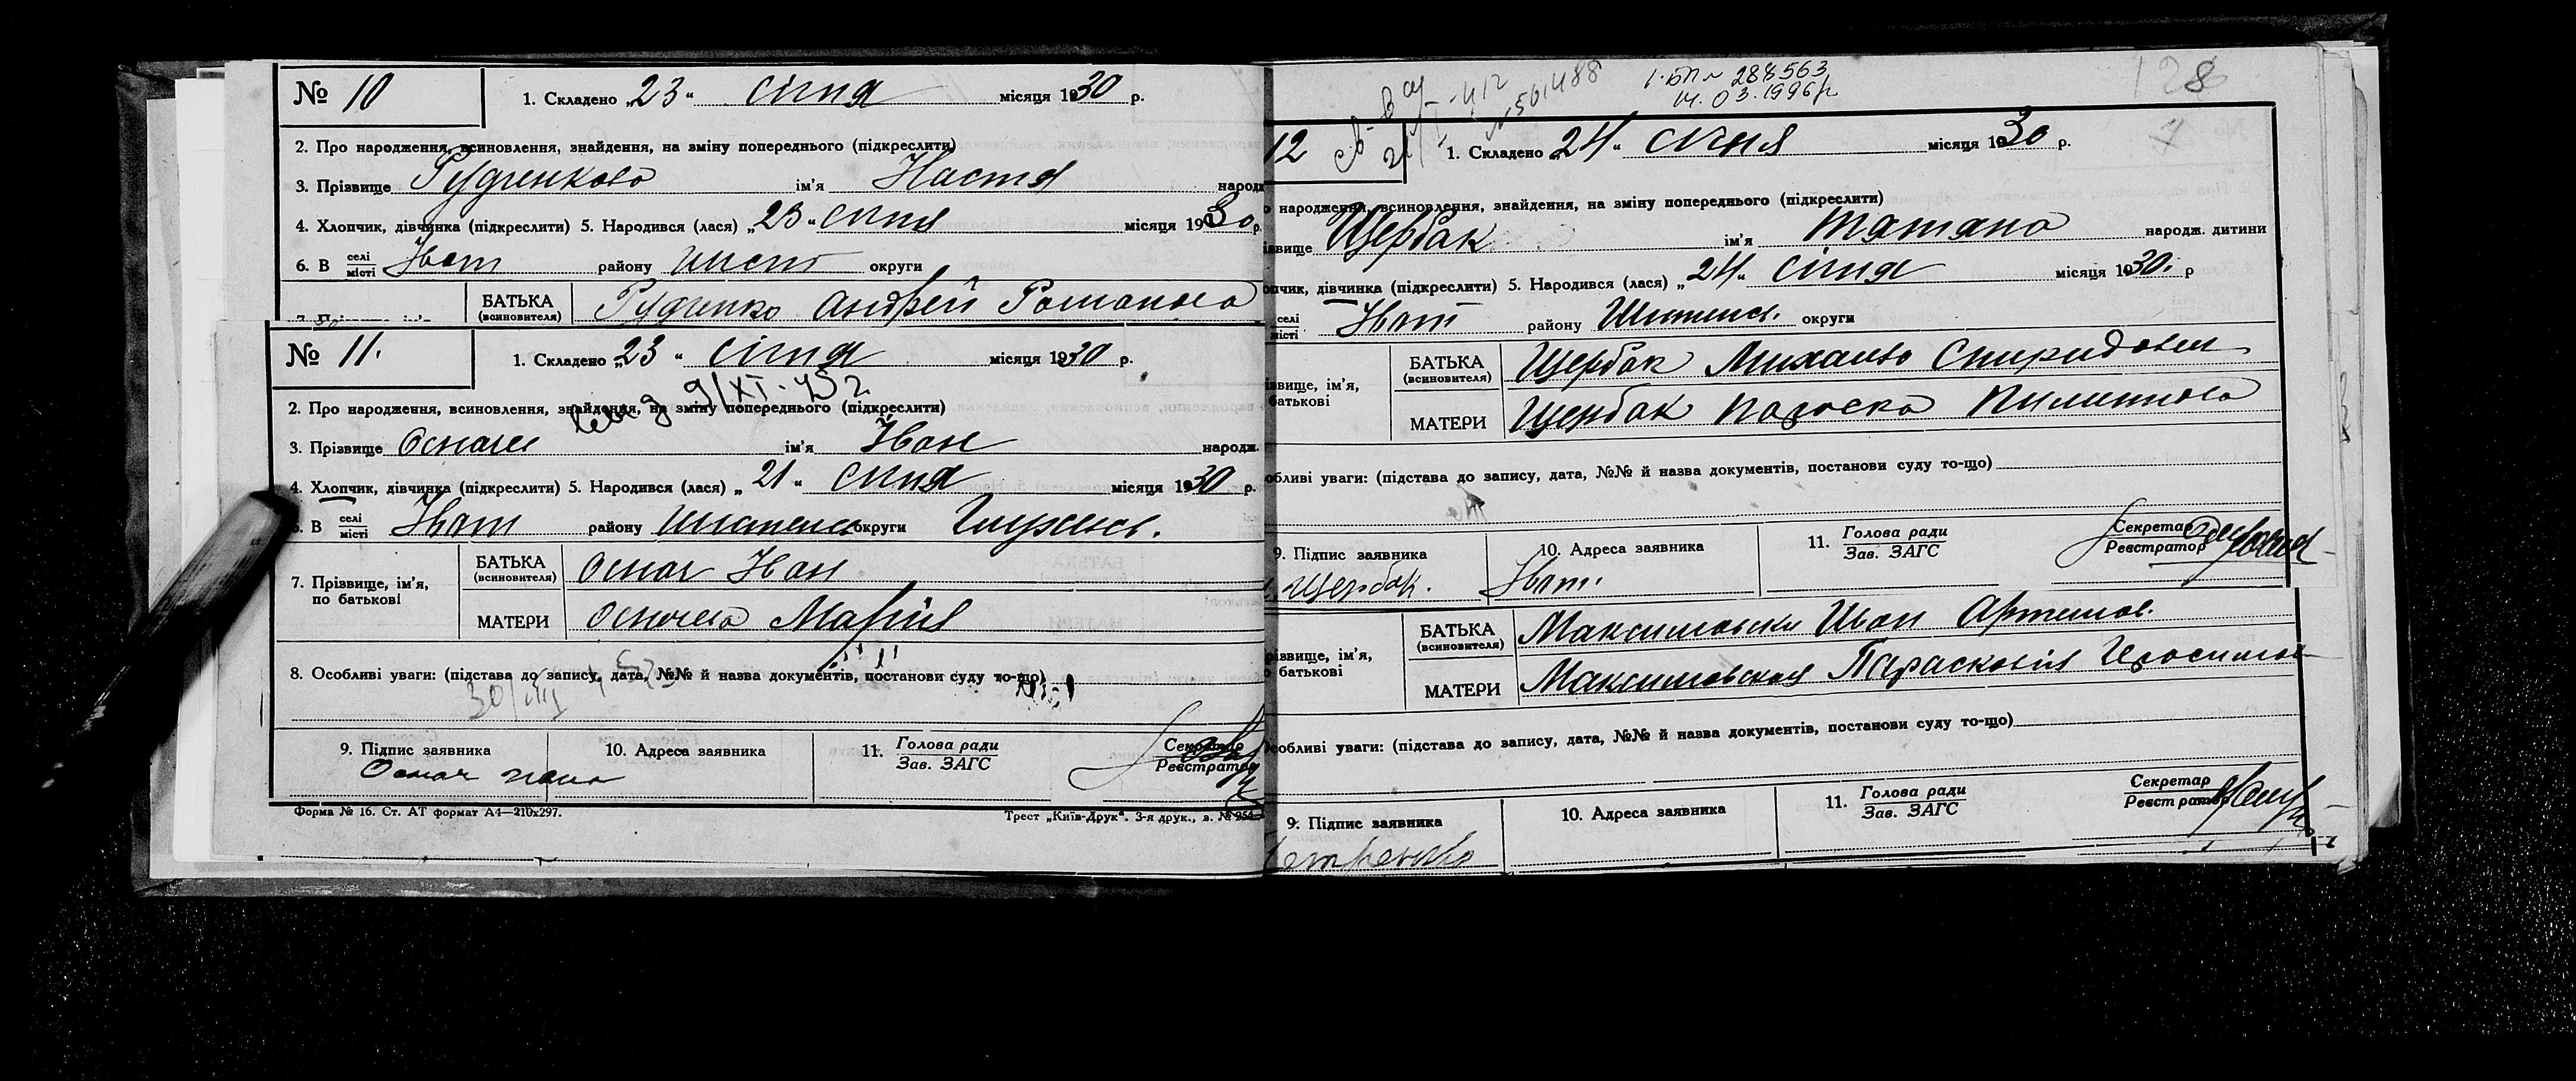 № 10 1. Складено „23“ січня місяця 1930 р.
2. Про народження, всиновлення, знайдення, на зміну попереднього (підкреслити)
3. Прізвище Руденкова ім'я Настя народж
4. Хлопчик, дівчинка (підкреслити) 5. Народився (лася) „23“ січня місяця 1930 р.
6. В селі місті Івот району округи
БАТЬКА (всиновителя) Руденко Андрей Романова
№ 11. 1. Складено „23“ січня місяця 1930 р.
9/XI-45 г
2. Про народження, всиновлення, знайдення, на зміну попереднього (підкреслити)
3. Прізвище ім'я Іван народж.
4. Хлопчик, дівчинка (підкреслити) 5. Народився (лася) „21“ січня місяця 1930 р.
6. В селі місті Івот району округи
7. Прізвище, ім'я, по батькові БАТЬКА (всиновителя) Осмач Іван
МАТЕРИ Марія
8. Особливі уваги: (підстава до запису, дата, №№ й назва документів, постанови суду то-що)
9. Підпис заявника 10. Адреса заявника 11. Голова ради Зав. ЗАГС Секретар Реєстратор
Осмач
Форма № 16. Ст. АТ формат А4—210х297. Трест „Київ-Друк“. 3-я друк., в. № 254
288563
14.03.1996р
128
12 1. Складено „24“ січня місяця 1930 р.
народження, всиновлення, знайдення, на зміну попереднього (підкреслити)
ізвище Щербак ім'я Татяна народж. дитини
опчик, дівчинка (підкреслити) 5. Народився (лася) „24“ січня місяця 1930. р
селі місті Івот району округи
ізвище, ім'я, батькові БАТЬКА (всиновителя) Щербак Михайло Спиридович
МАТЕРИ Щербак Параска Пилиповна
обливі уваги: (підстава до запису, дата, №№ й назва документів, постанови суду то-що)
9. Підпис заявника 10. Адреса заявника 11. Голова ради Зав. ЗАГС Секретар Реєстратор
Щербак. Івот.
різвище, ім'я, о батькові БАТЬКА (всиновителя) Максимовский Иван Артемов.
МАТЕРИ Максимовская Парасковія
особливі уваги: (підстава до запису, дата, №№ й назва документів, постанови суду то-що)
9. Підпис заявника 10. Адреса заявника 11. Голова ради Зав. ЗАГС Секретар Реєстратор